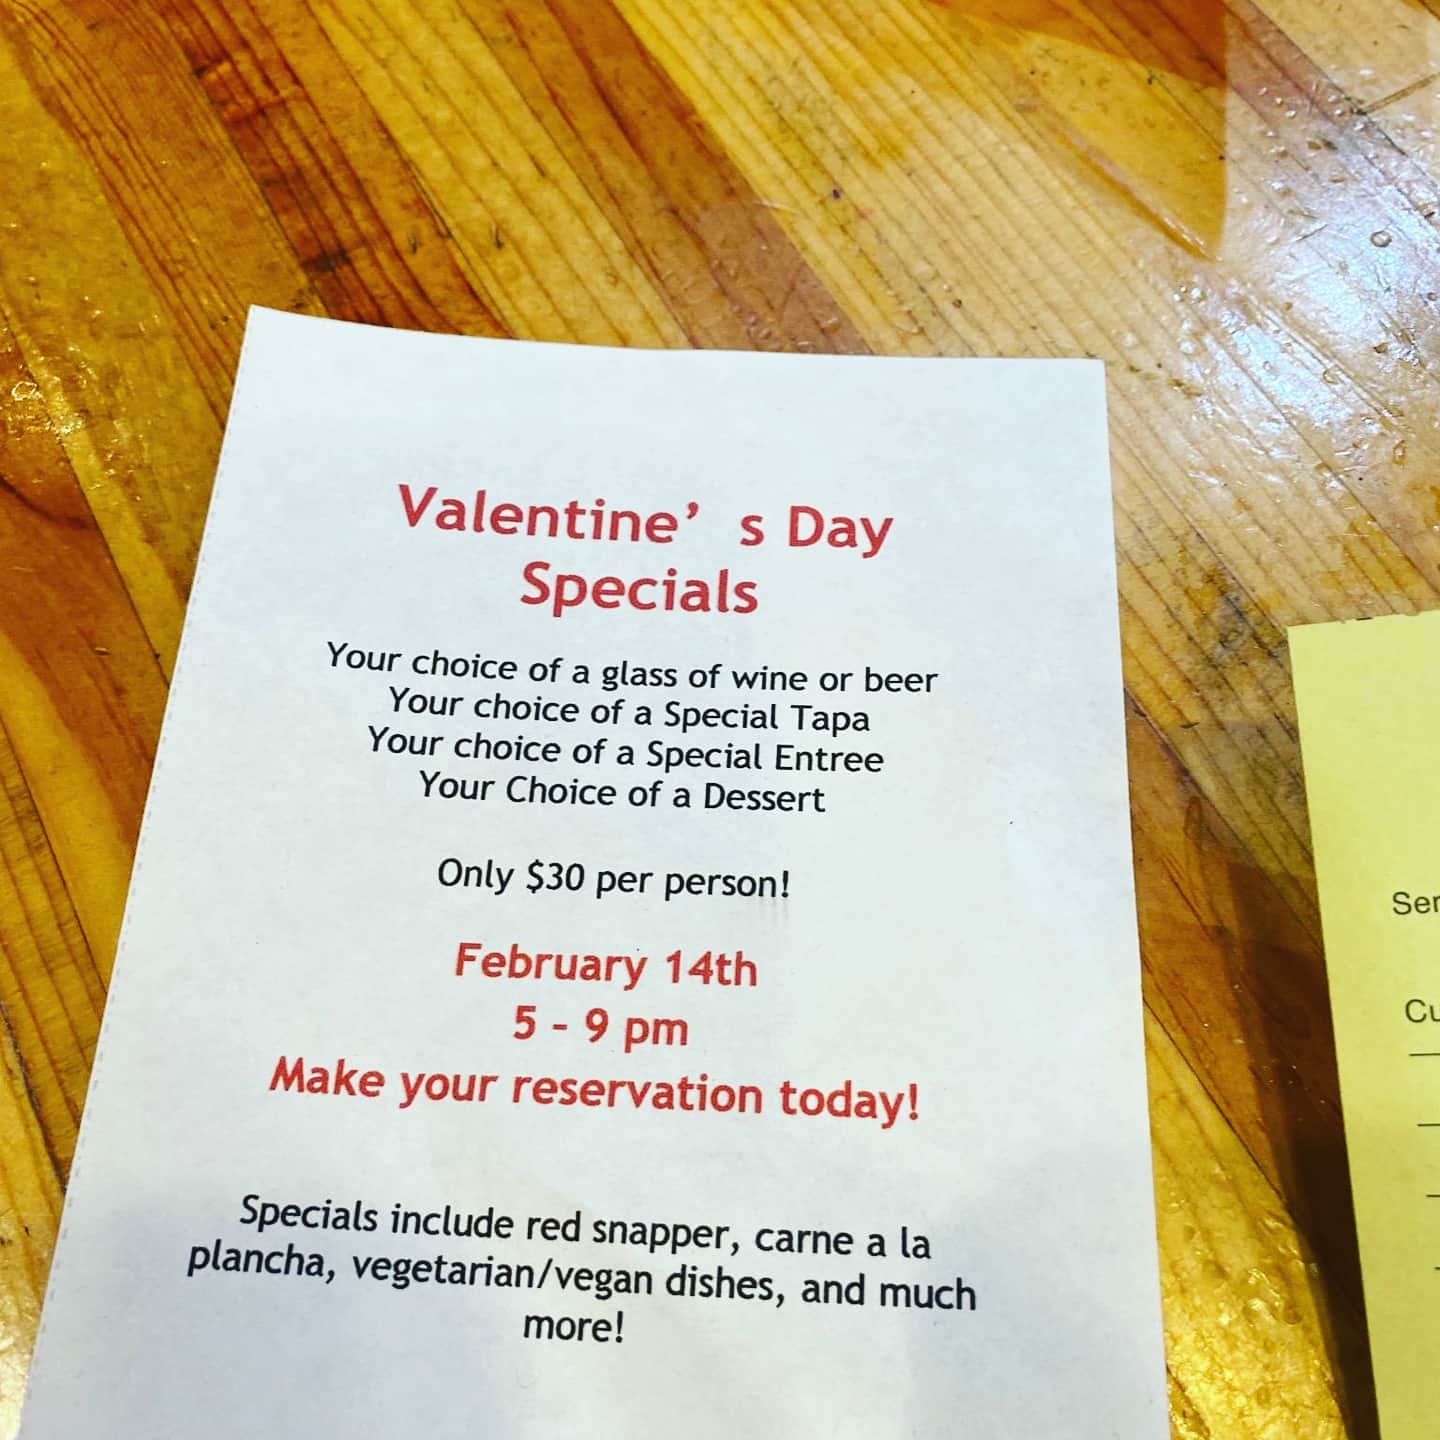 Valentine’ s Day
Specials
Your choice of a glass of wine or beer
Your choice of a Special Tapa
Your choice of a Special Entree
Your Choice of a Dessert
Only $30 per person!
February 14th
5 - 9 pm
Make your reservation today!
Specials include red snapper, carne a la
plancha, vegetarian/vegan dishes, and much
more!